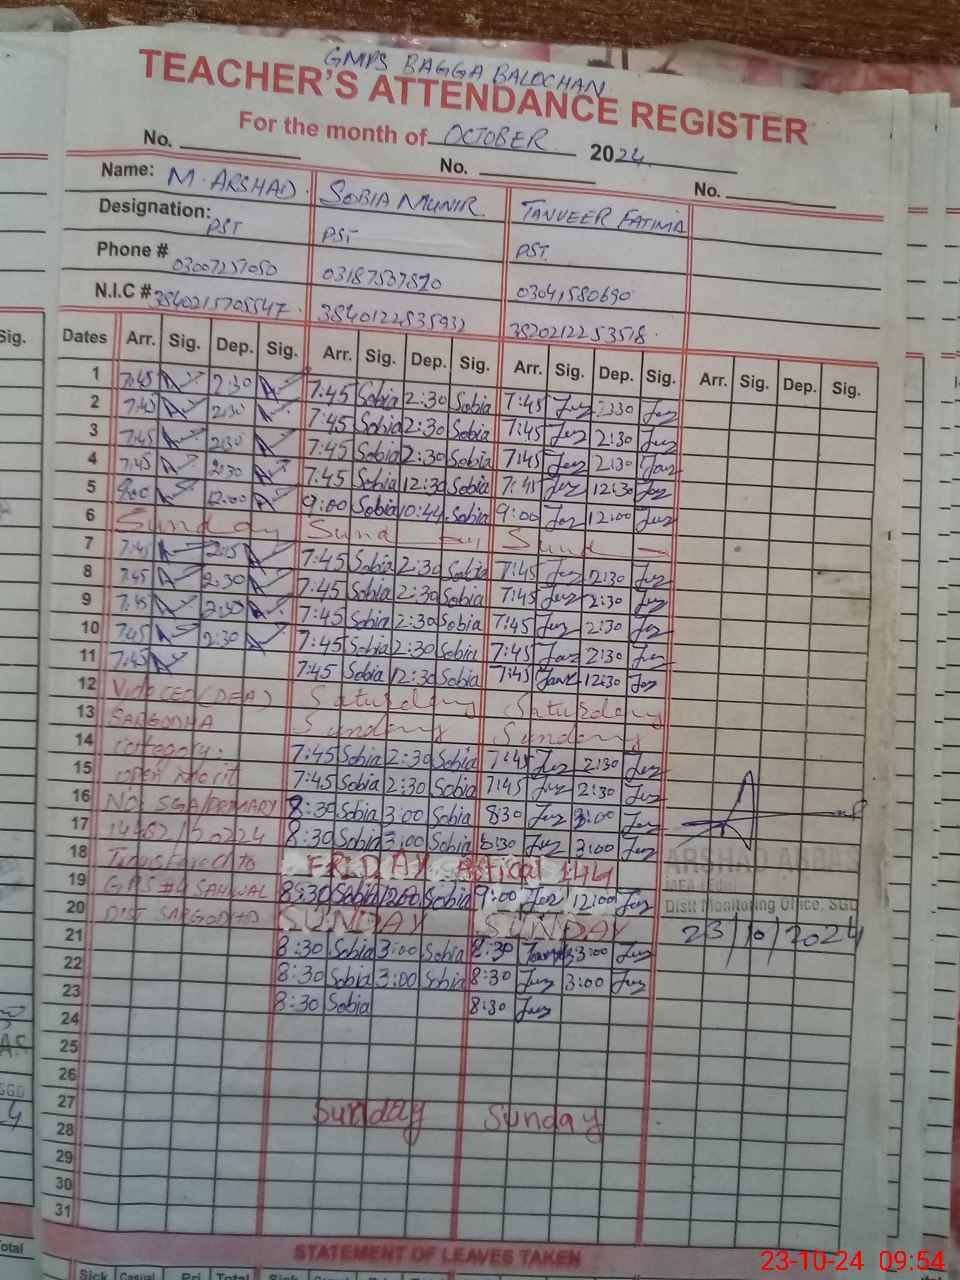 GMPS BAGGA BALOCHAN
TEACHER'S ATTENDANCE REGISTER
For the month of OCTOBER 2024
No. No. No.
Name: M. ARSHAD SOBIA MUNIR TANVEER FATIMA
Designation: PST PST PST
Phone # 03007257050 03187537820 03041580690
N.I.C # 3840215705547 3840122835932 3820212253518
Dates Arr. Sig. Dep. Sig. Arr. Sig. Dep. Sig. Arr. Sig. Dep. Sig. Arr. Sig. Dep. Sig.
1 7:45 2:30 7:45 Sobia 2:30 Sobia 7:45 2:30
2 7:45 2:30 7:45 Sobia 2:30 Sobia 7:45 2:30
3 7:45 2:30 7:45 Sobia 2:30 Sobia 7:45 2:30
4 7:45 2:30 7:45 Sobia 12:30 Sobia 7:45 12:30
5 9:00 12:00 9:00 Sobia 10:44 Sobia 9:00 12:00
6 Sunday Sunday Sund
7 7:45 2:15 7:45 Sobia 2:30 Sobia 7:45 2:30
8 7:45 2:30 7:45 Sobia 2:30 Sobia 7:45 2:30
9 7:45 2:30 7:45 Sobia 2:30 Sobia 7:45 2:30
10 7:45 2:30 7:45 Sobia 2:30 Sobia 7:45 2:30
11 7:45 7:45 Sobia 12:30 Sobia 7:45 12:30
12 Vide CEO (DEA) Saturday Saturday
13 SARGODHA Sunday Sunday
14 Category: 7:45 Sobia 2:30 Sobia 7:45 2:30
15 open Merit 7:45 Sobia 2:30 Sobia 7:45 2:30
16 NO. SGA/PRIMARY 8:30 Sobia 3:00 Sobia 8:30 3:00
17 8:30 Sobia 3:00 Sobia 8:30 3:00
18 Transfered to FRIDAY 144
19 GPS #4 SAHIWAL 8:30 Sobia 12:00 Sobia 9:00 12:00
20 DIST SARGODHA SUNDAY SUNDAY
21 8:30 Sobia 3:00 Sobia 8:30 3:00
22 8:30 Sobia 3:00 Sobia 8:30 3:00
23 8:30 Sobia 8:30
24
25
26
27 Sunday Sunday
28
29
30
31
ARSHAD ABBAS
Distt Monitoring Office, SGD
23/10/2024
STATEMENT OF LEAVES TAKEN
Sick Casual Pri Total Sick
23-10-24 09:54